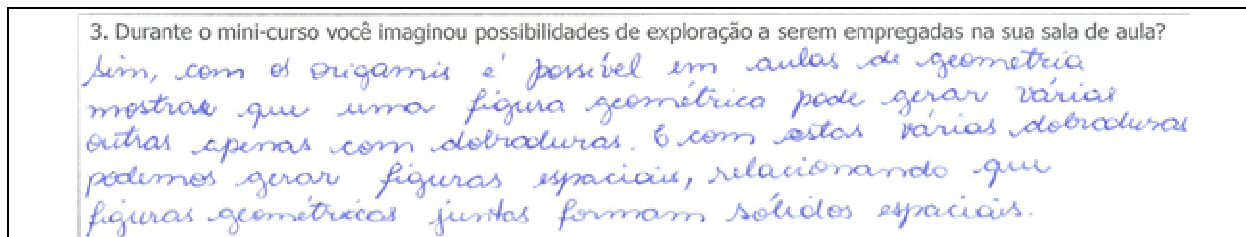 3. Durante o mini-curso você imaginou possibilidades de exploração a serem empregadas na sua sala de aula?
Sim, com os origamis é possível em aulas de geometria
mostrar que uma figura geométrica pode gerar várias
outras apenas com dobraduras. E com estas várias dobraduras
podemos gerar figuras espaciais, relacionando que
figuras geométricas juntas formam sólidos espaciais.